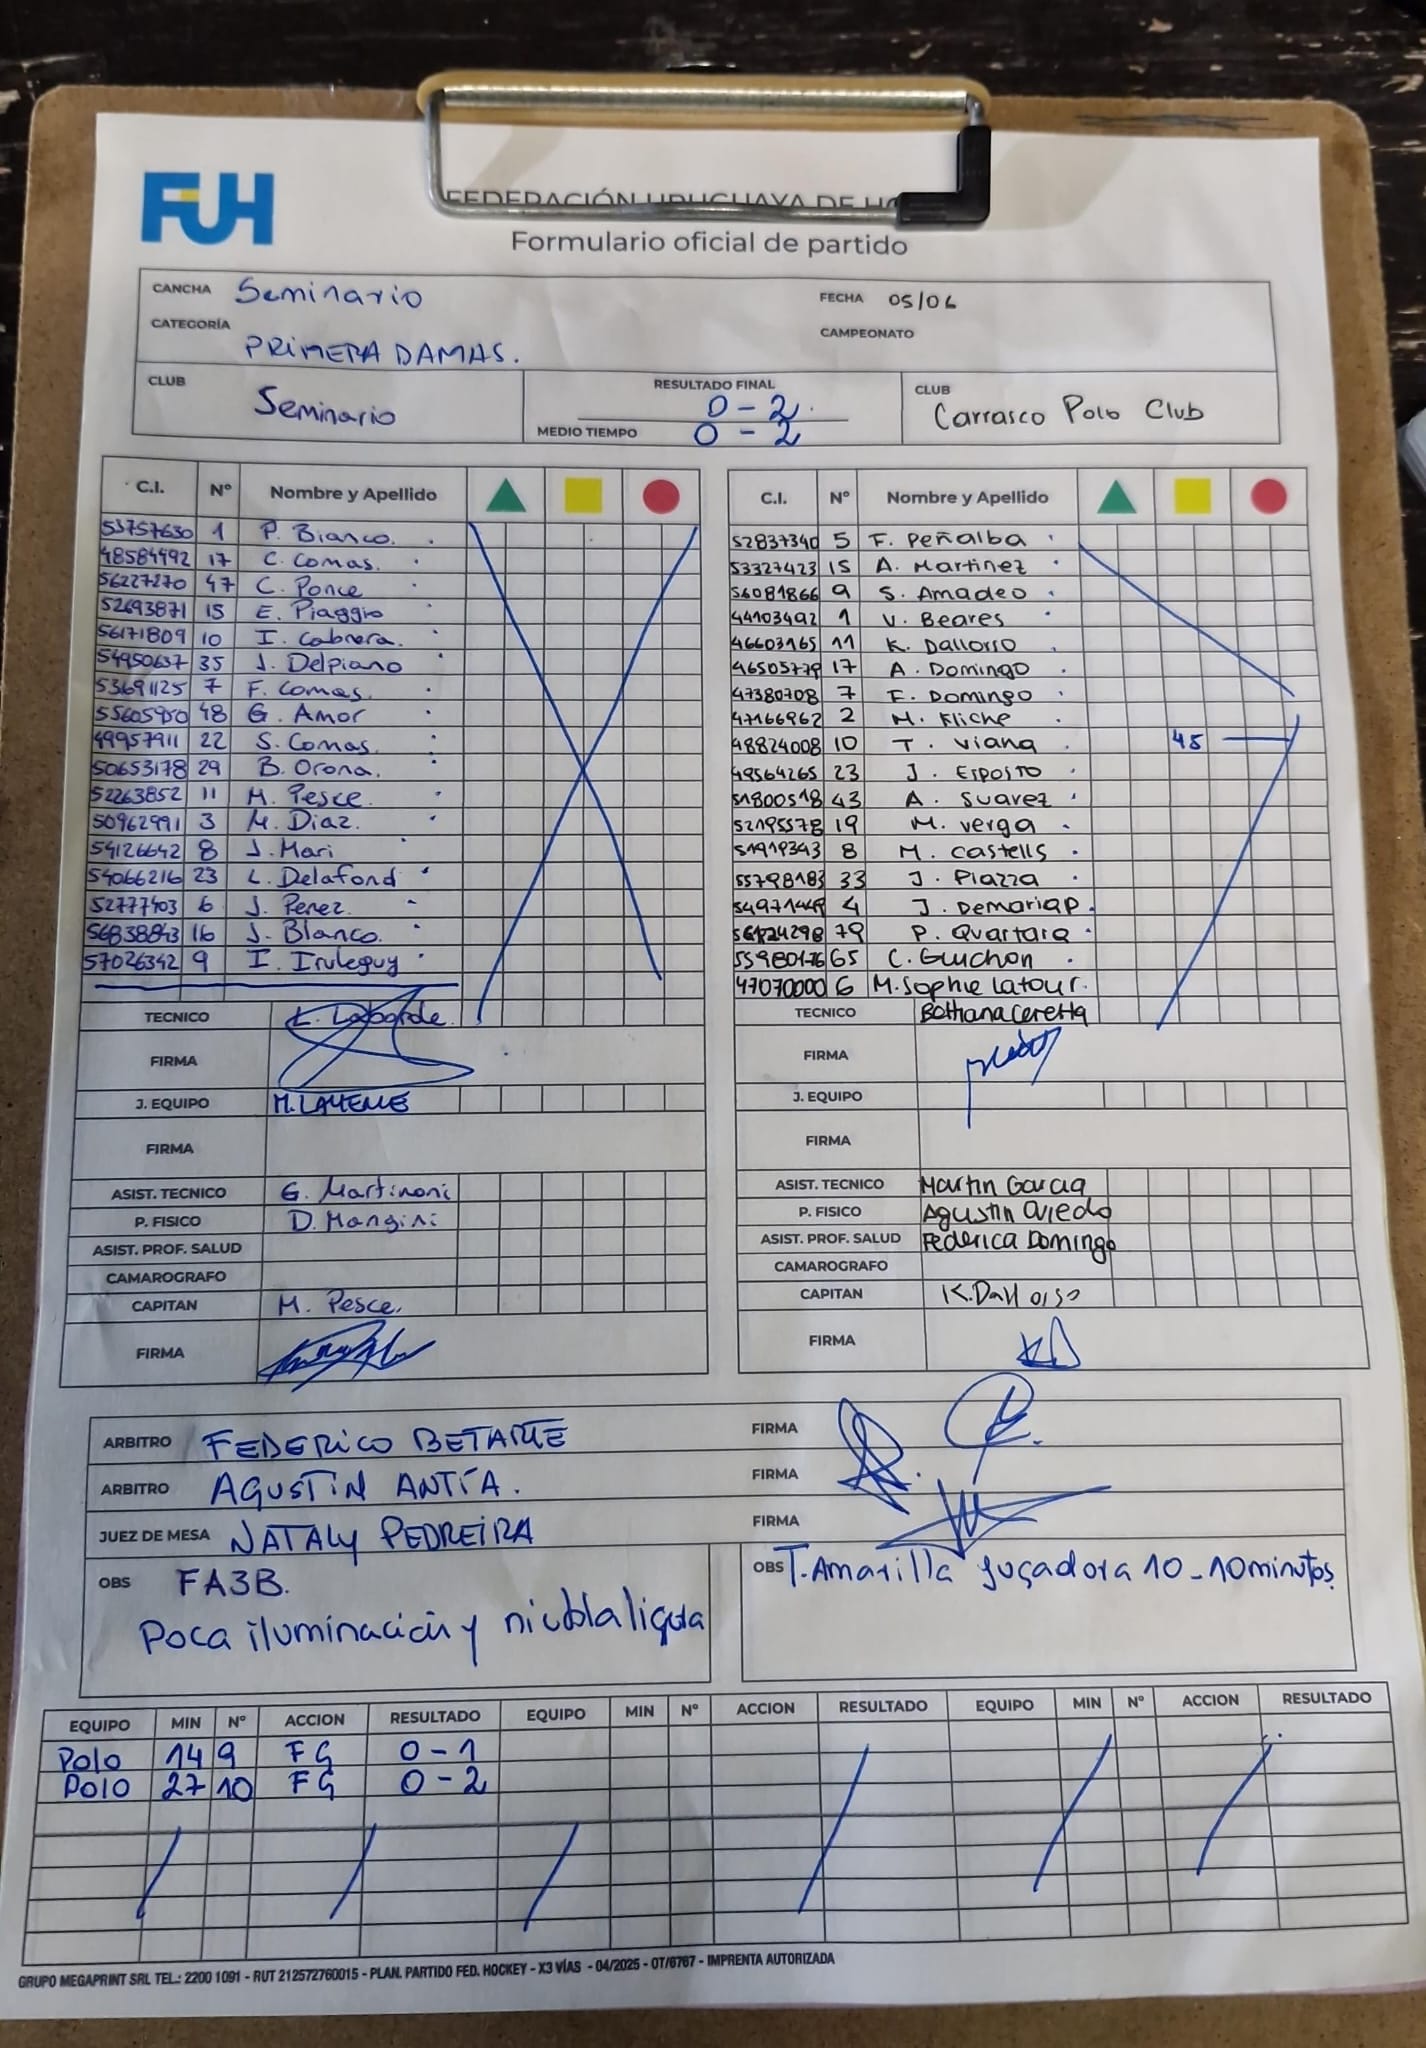 FUH
FEDERACIÓN URUGUAYA DE HO
Formulario oficial de partido
CANCHA Seminario FECHA 05/06
CATEGORÍA PRIMERA DAMAS. CAMPEONATO
CLUB Seminario RESULTADO FINAL 0-2. CLUB Carrasco Polo Club
MEDIO TIEMPO 0-2
C.I. Nº Nombre y Apellido
53757630 1 P. Bianco.
48584492 17 C. Comas.
56227270 47 C. Ponce
52693871 15 E. Piaggio
56171809 10 I. Cabrera.
54950637 35 J. Delpiano
53691125 7 F. Comas.
55605950 48 G. Amor
49957911 22 S. Comas.
50653178 29 B. Orona.
52263852 11 M. Pesce.
50962991 3 M. Diaz.
54126642 8 J. Mari
54066216 23 L. Delafond
52777403 6 J. Perez.
56838843 16 J. Blanco.
57026342 9 I. Iruleguy
TECNICO L. Laborde.
FIRMA
J. EQUIPO
FIRMA
ASIST. TECNICO G. Martinoni
P. FISICO D. Mangini
ASIST. PROF. SALUD
CAMAROGRAFO
CAPITAN M. Pesce.
FIRMA
C.I. Nº Nombre y Apellido
52837340 5 F. Peñalba
53327423 15 A. Martinez
56081866 9 S. Amadeo
44103492 1 V. Beares
46603165 11 K. Dallorso
46505779 17 A. Domingo
47380708 7 F. Domingo
47166962 2 M. Fliche
48824008 10 T. Viana 45
49564265 23 J. Esposto
51800518 43 A. Suarez
52195578 19 M. Verga
51919343 8 M. Castells
55798183 33 J. Piazza
4 J. Demaria P.
79 P. Quartara
55980176 65 C. Guichon
47070000 6 M. Sophie Latour.
TECNICO Bettiana Ceretta
FIRMA
J. EQUIPO
FIRMA
ASIST. TECNICO Martin Garcia
P. FISICO Agustin Oviedo
ASIST. PROF. SALUD Federica Domingo
CAMAROGRAFO
CAPITAN K. Dallorso
FIRMA
ARBITRO FEDERICO BETARTE FIRMA
ARBITRO AGUSTIN ANTÍA. FIRMA
JUEZ DE MESA NATALY PEDREIRA FIRMA
OBS FA3B.
Poca iluminación y niebla ligera
OBS T. Amarilla jugadora 10 - 10 minutos.
EQUIPO MIN Nº ACCION RESULTADO EQUIPO MIN Nº ACCION RESULTADO EQUIPO MIN Nº ACCION RESULTADO
Polo 14 9 FG 0-1
Polo 27 10 FG 0-2
GRUPO MEGAPRINT SRL TEL.: 2200 1091 - RUT 212572760015 - PLAN. PARTIDO FED. HOCKEY - X3 VÍAS - 04/2025 - OT/6767 - IMPRENTA AUTORIZADA